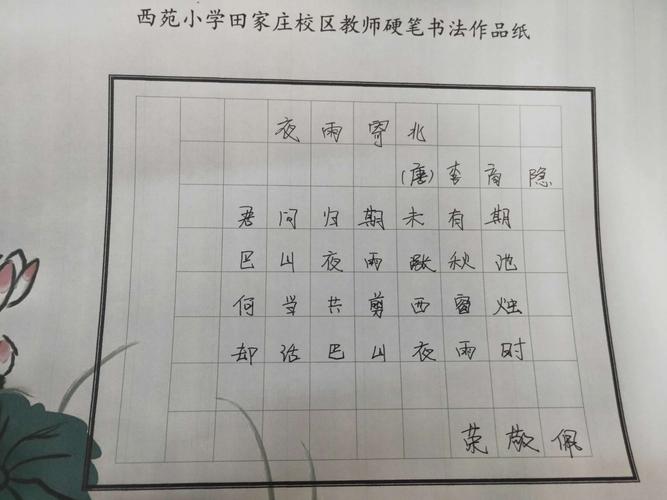 西苑小学田家庄校区教师硬笔书法作品纸
夜雨寄北
(唐)李商隐
君问归期未有期
巴山夜雨涨秋池
何当共剪西窗烛
却话巴山夜雨时
荣敬佩